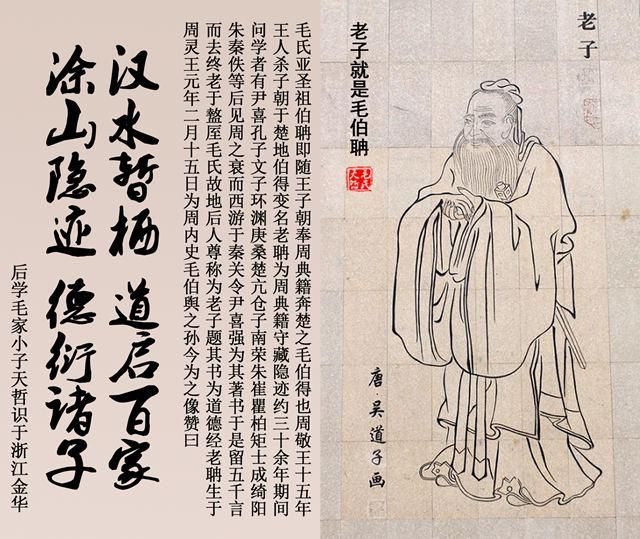 老子
唐吴道子画
老子就是毛伯聃
毛氏天哲
毛氏亚圣祖伯聃即随王子朝奉周典籍奔楚之毛伯得也周敬王十五年
王人杀子朝于楚地伯得变名老聃为周典籍守藏隐迹约三十余年期间
问学者有尹喜孔子文子环渊庚桑楚亢仓子南荣朱崔瞿柏矩士成绮阳
朱秦佚等后见周之衰而西游于秦关令尹喜强为其著书于是留五千言
而去终老于盩厔毛氏故地后人尊称为老子题其书为道德经老聃生于
周灵王元年二月十五日为周内史毛伯舆之孙今为之像赞曰
汉水暫栖 道启百家
涂山隐迹 德衍诸子
后学毛家小子天哲识于浙江金华